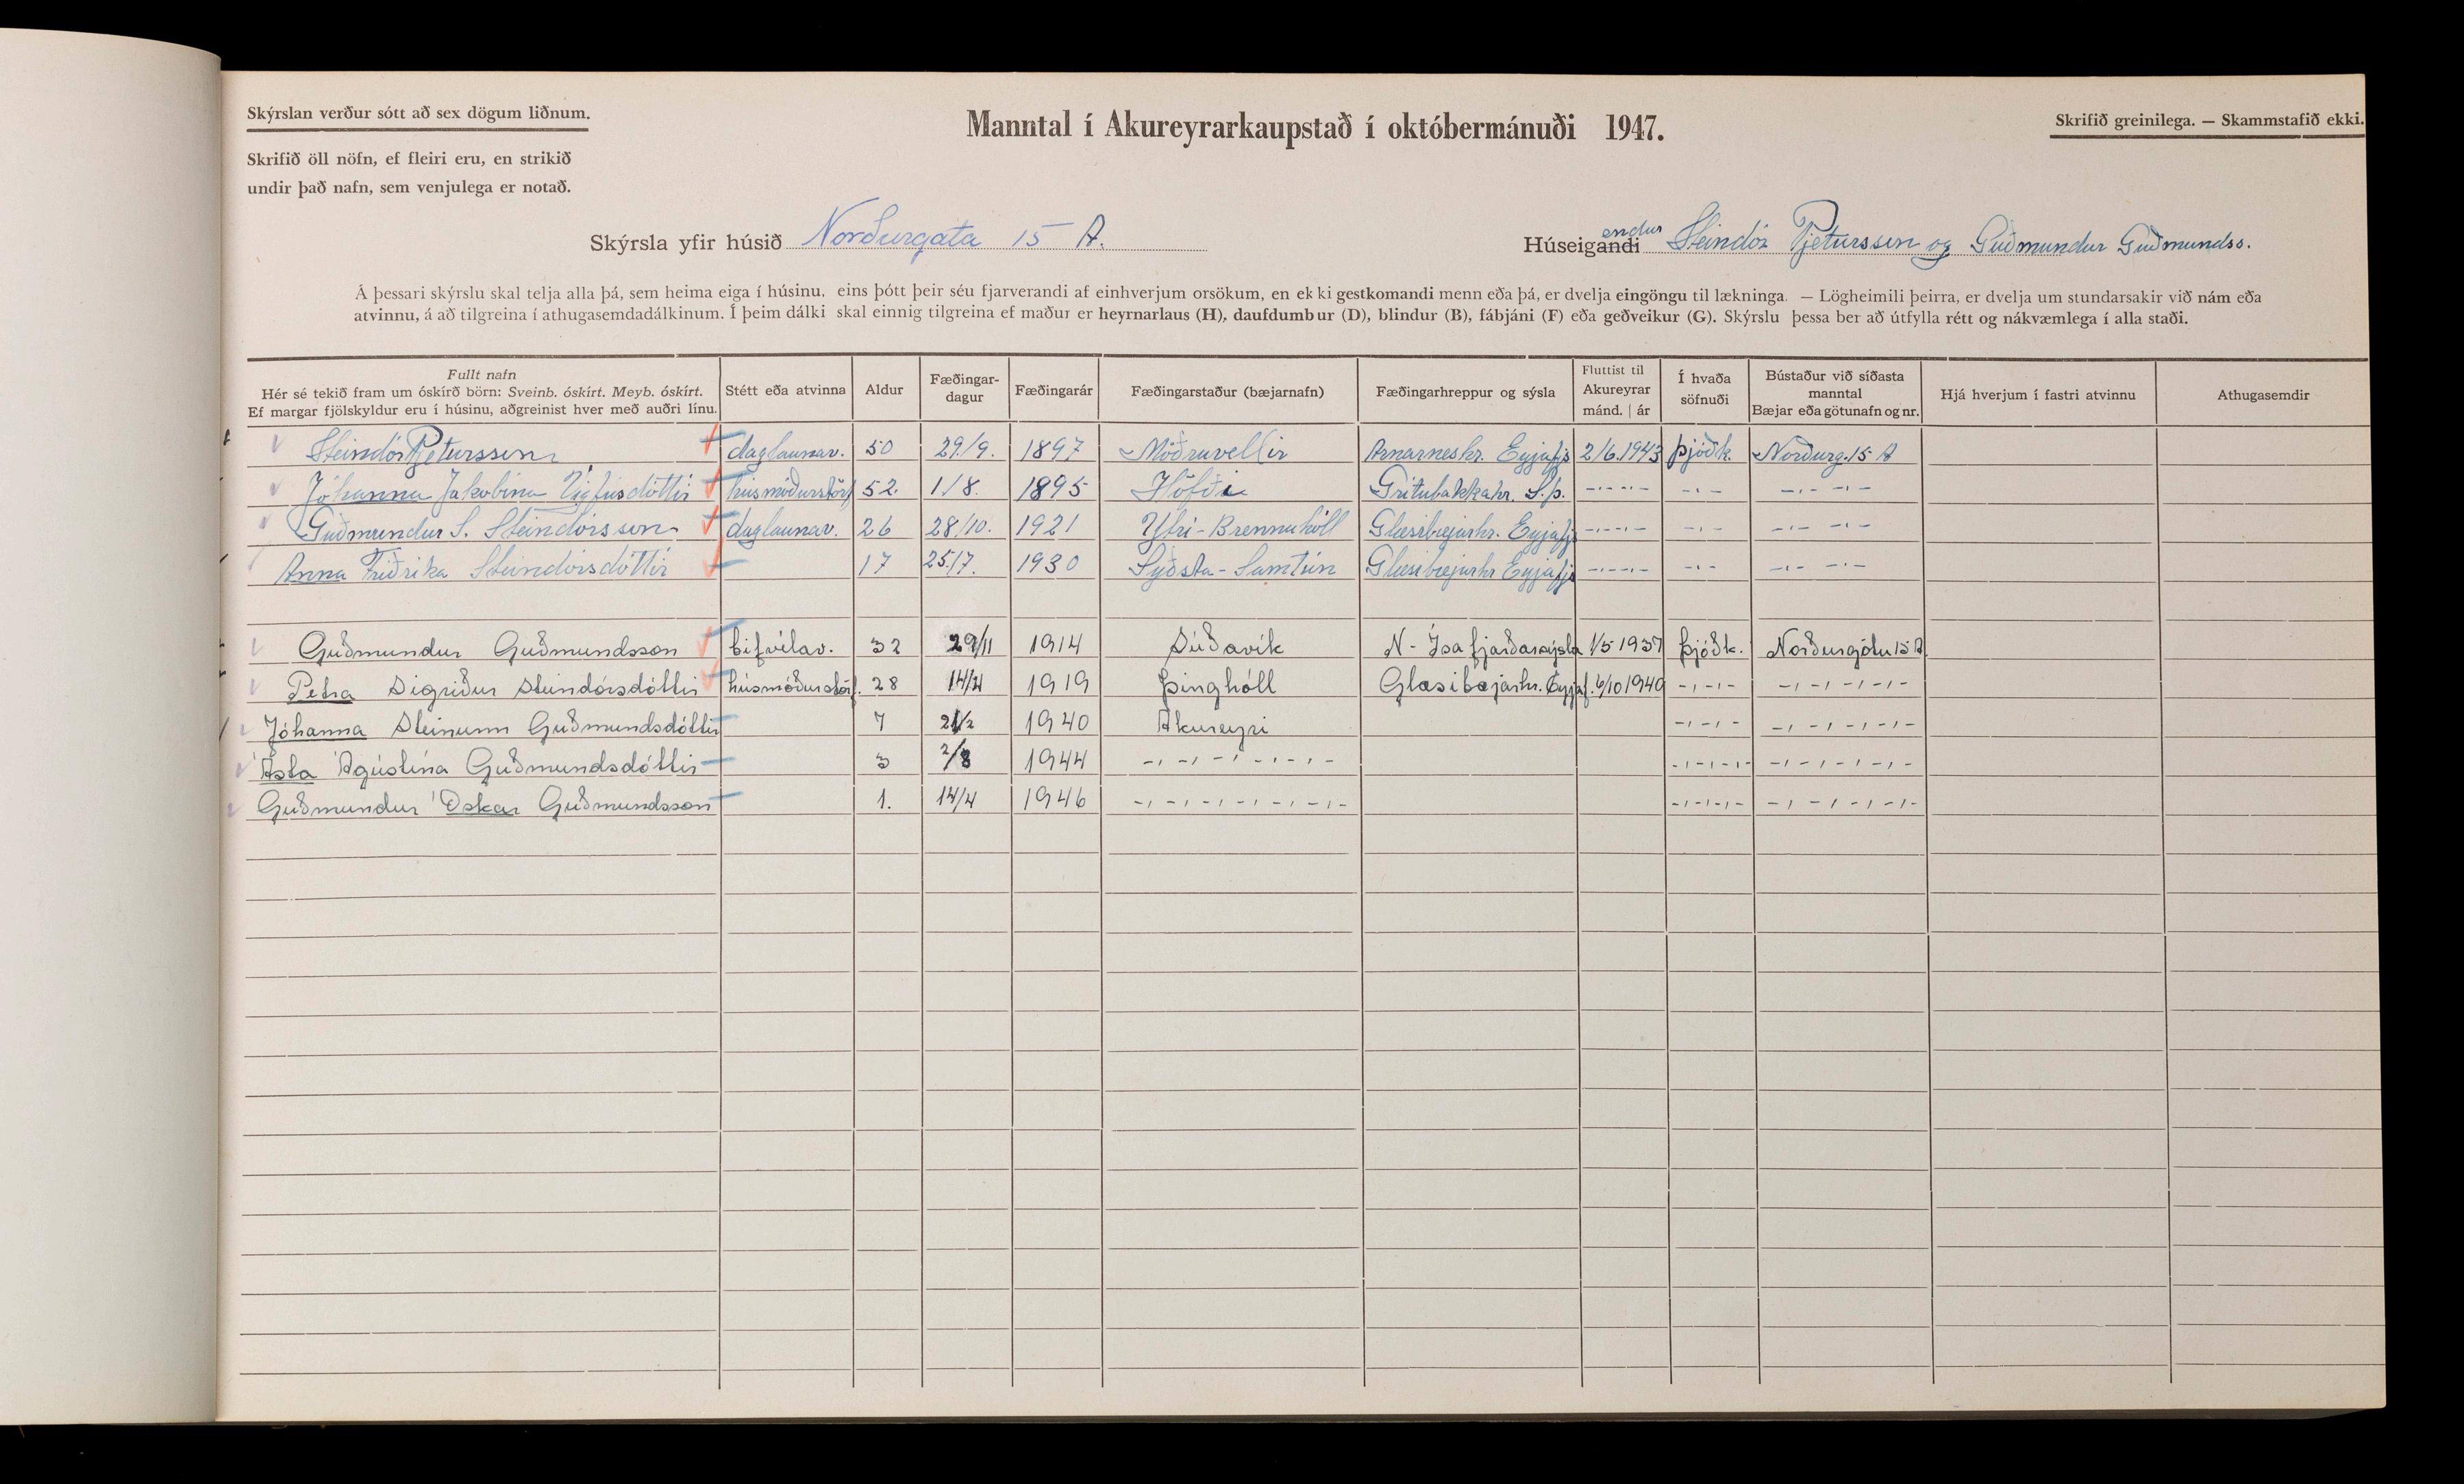 Skýrslan verður sótt að sex dögum liðnum.
Manntal í Akureyrarkaupstað í októbermánuði 1947.
Skrifið greinilega. — Skammstafið ekki.
Skrifið öll nöfn, ef fleiri eru, en strikið
undir það nafn, sem venjulega er notað.
Skýrsla yfir húsið Norðurgata 15 A.
Húseigandi endur Steindór Pjetursson og Guðmundur Guðmundss.
Á þessari skýrslu skal telja alla þá, sem heima eiga í húsinu, eins þótt þeir séu fjarverandi af einhverjum orsökum, en ekki gestkomandi menn eða þá, er dvelja eingöngu til lækninga. — Lögheimili þeirra, er dvelja um stundarsakir við nám eða
atvinnu, á að tilgreina í athugasemdadálkinum. Í þeim dálki skal einnig tilgreina ef maður er heyrnarlaus (H), daufdumbur (D), blindur (B), fábjáni (F) eða geðveikur (G). Skýrslu þessa ber að útfylla rétt og nákvæmlega í alla staði.
Fullt nafn
Hér sé tekið fram um óskírð börn: Sveinb. óskírt. Meyb. óskírt.
Ef margar fjölskyldur eru í húsinu, aðgreinist hver með auðri línu.
Stétt eða atvinna
Aldur
Fæðingar-
dagur
Fæðingarár
Fæðingarstaður (bæjarnafn)
Fæðingarhreppur og sýsla
Fluttist til
Akureyrar
mánd. | ár
Í hvaða
söfnuði
Bústaður við síðasta
manntal
Bæjar eða götunafn og nr.
Hjá hverjum í fastri atvinnu
Athugasemdir
Steindór Pjetursson daglaunav. 50 29./9. 1897 Möðruvellir Arnarneshr. Eyjafjs 2/6.1943 þjóðk. Norðurg. 15 A
Jóhanna Jakobína Vigfúsdóttir húsmóðurstörf 52. 1/8. 1895 Höfði Grítubakkahr. S.þ. -"-"- -"- -"- -"-
Guðmundur S. Steindórsson daglaunav. 26 28/10. 1921 Ytri-Brennihóll Glæsibæjarhr. Eyjafjs -"-"- -"- -"- -"-
Anna Friðrika Steindórsdóttir 17 25/7. 1930 Syðsta-Samtún Glæsibæjarhr Eyjafjs -"-"- -"- -"- -"-
Guðmundur Guðmundsson bifvélav. 32 29/11 1914 Súðavík N-Ísafjarðarsýsla 1/5 1937 þjóðk. Norðurgötu 15 A
Petra Sigríður Steindórsdóttir húsmóðurstörf. 28 14/4 1919 Þinghóll Glæsibæjarhr. Eyjaf. 6/10 1940 -"-"- -"-"-"-"-
Jóhanna Steinunn Guðmundsdóttir 7 21/2 1940 Akureyri -"-"- -"-"-"-"-
Ásta Ágústína Guðmundsdóttir 3 2/8 1944 -"-"-"-"-"- -"-"-"- -"-"-"-"-
Guðmundur Óskar Guðmundsson 1. 14/4 1946 -"-"-"-"-"- -"-"-"- -"-"-"-"-